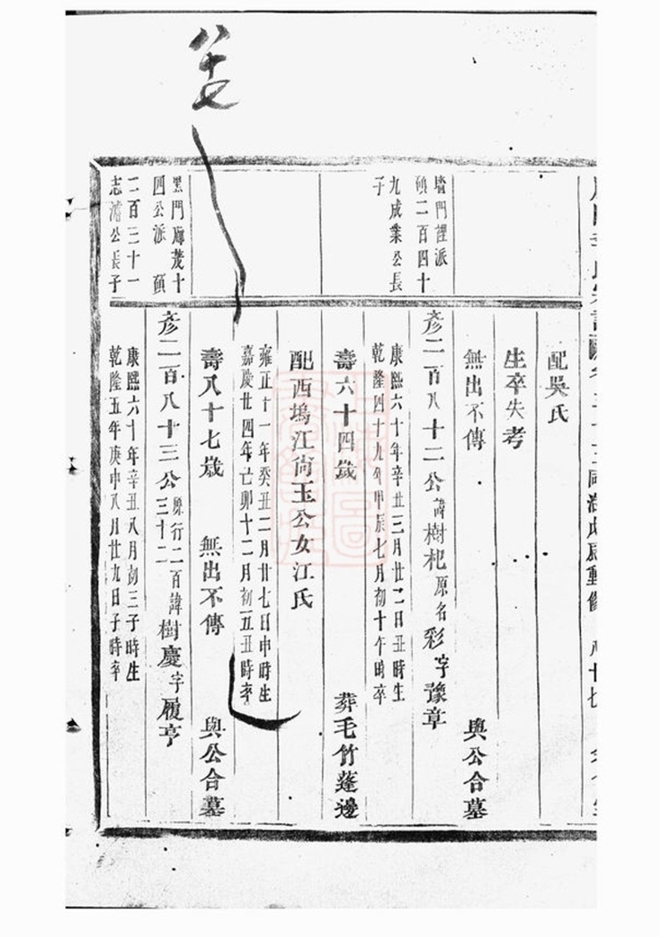 八十七
配吳氏
生卒失考
無出不傳
與公合墓
墻門裡派
碩二百四十
九成業公長
子
彥二百八十二公諱樹杞原名彩字豫章
康熙六十年辛丑三月廿二日丑時生
乾隆四十九年甲辰七月初十午時卒
壽六十四歲
葬毛竹蓬邊
配西塢江尚玉公女江氏
雍正十一年癸丑二月廿七日申時生
嘉慶廿四年己卯十二月初五丑時卒
壽八十七歲
無出不傳
與公合墓
黑門廳茂十
四公派 碩
二百三十一
志鴻公長子
彥二百八十三公原行二百三十二諱樹慶字履亨
康熙六十年辛丑八月初三子時生
乾隆五年庚申八月廿九日子時卒